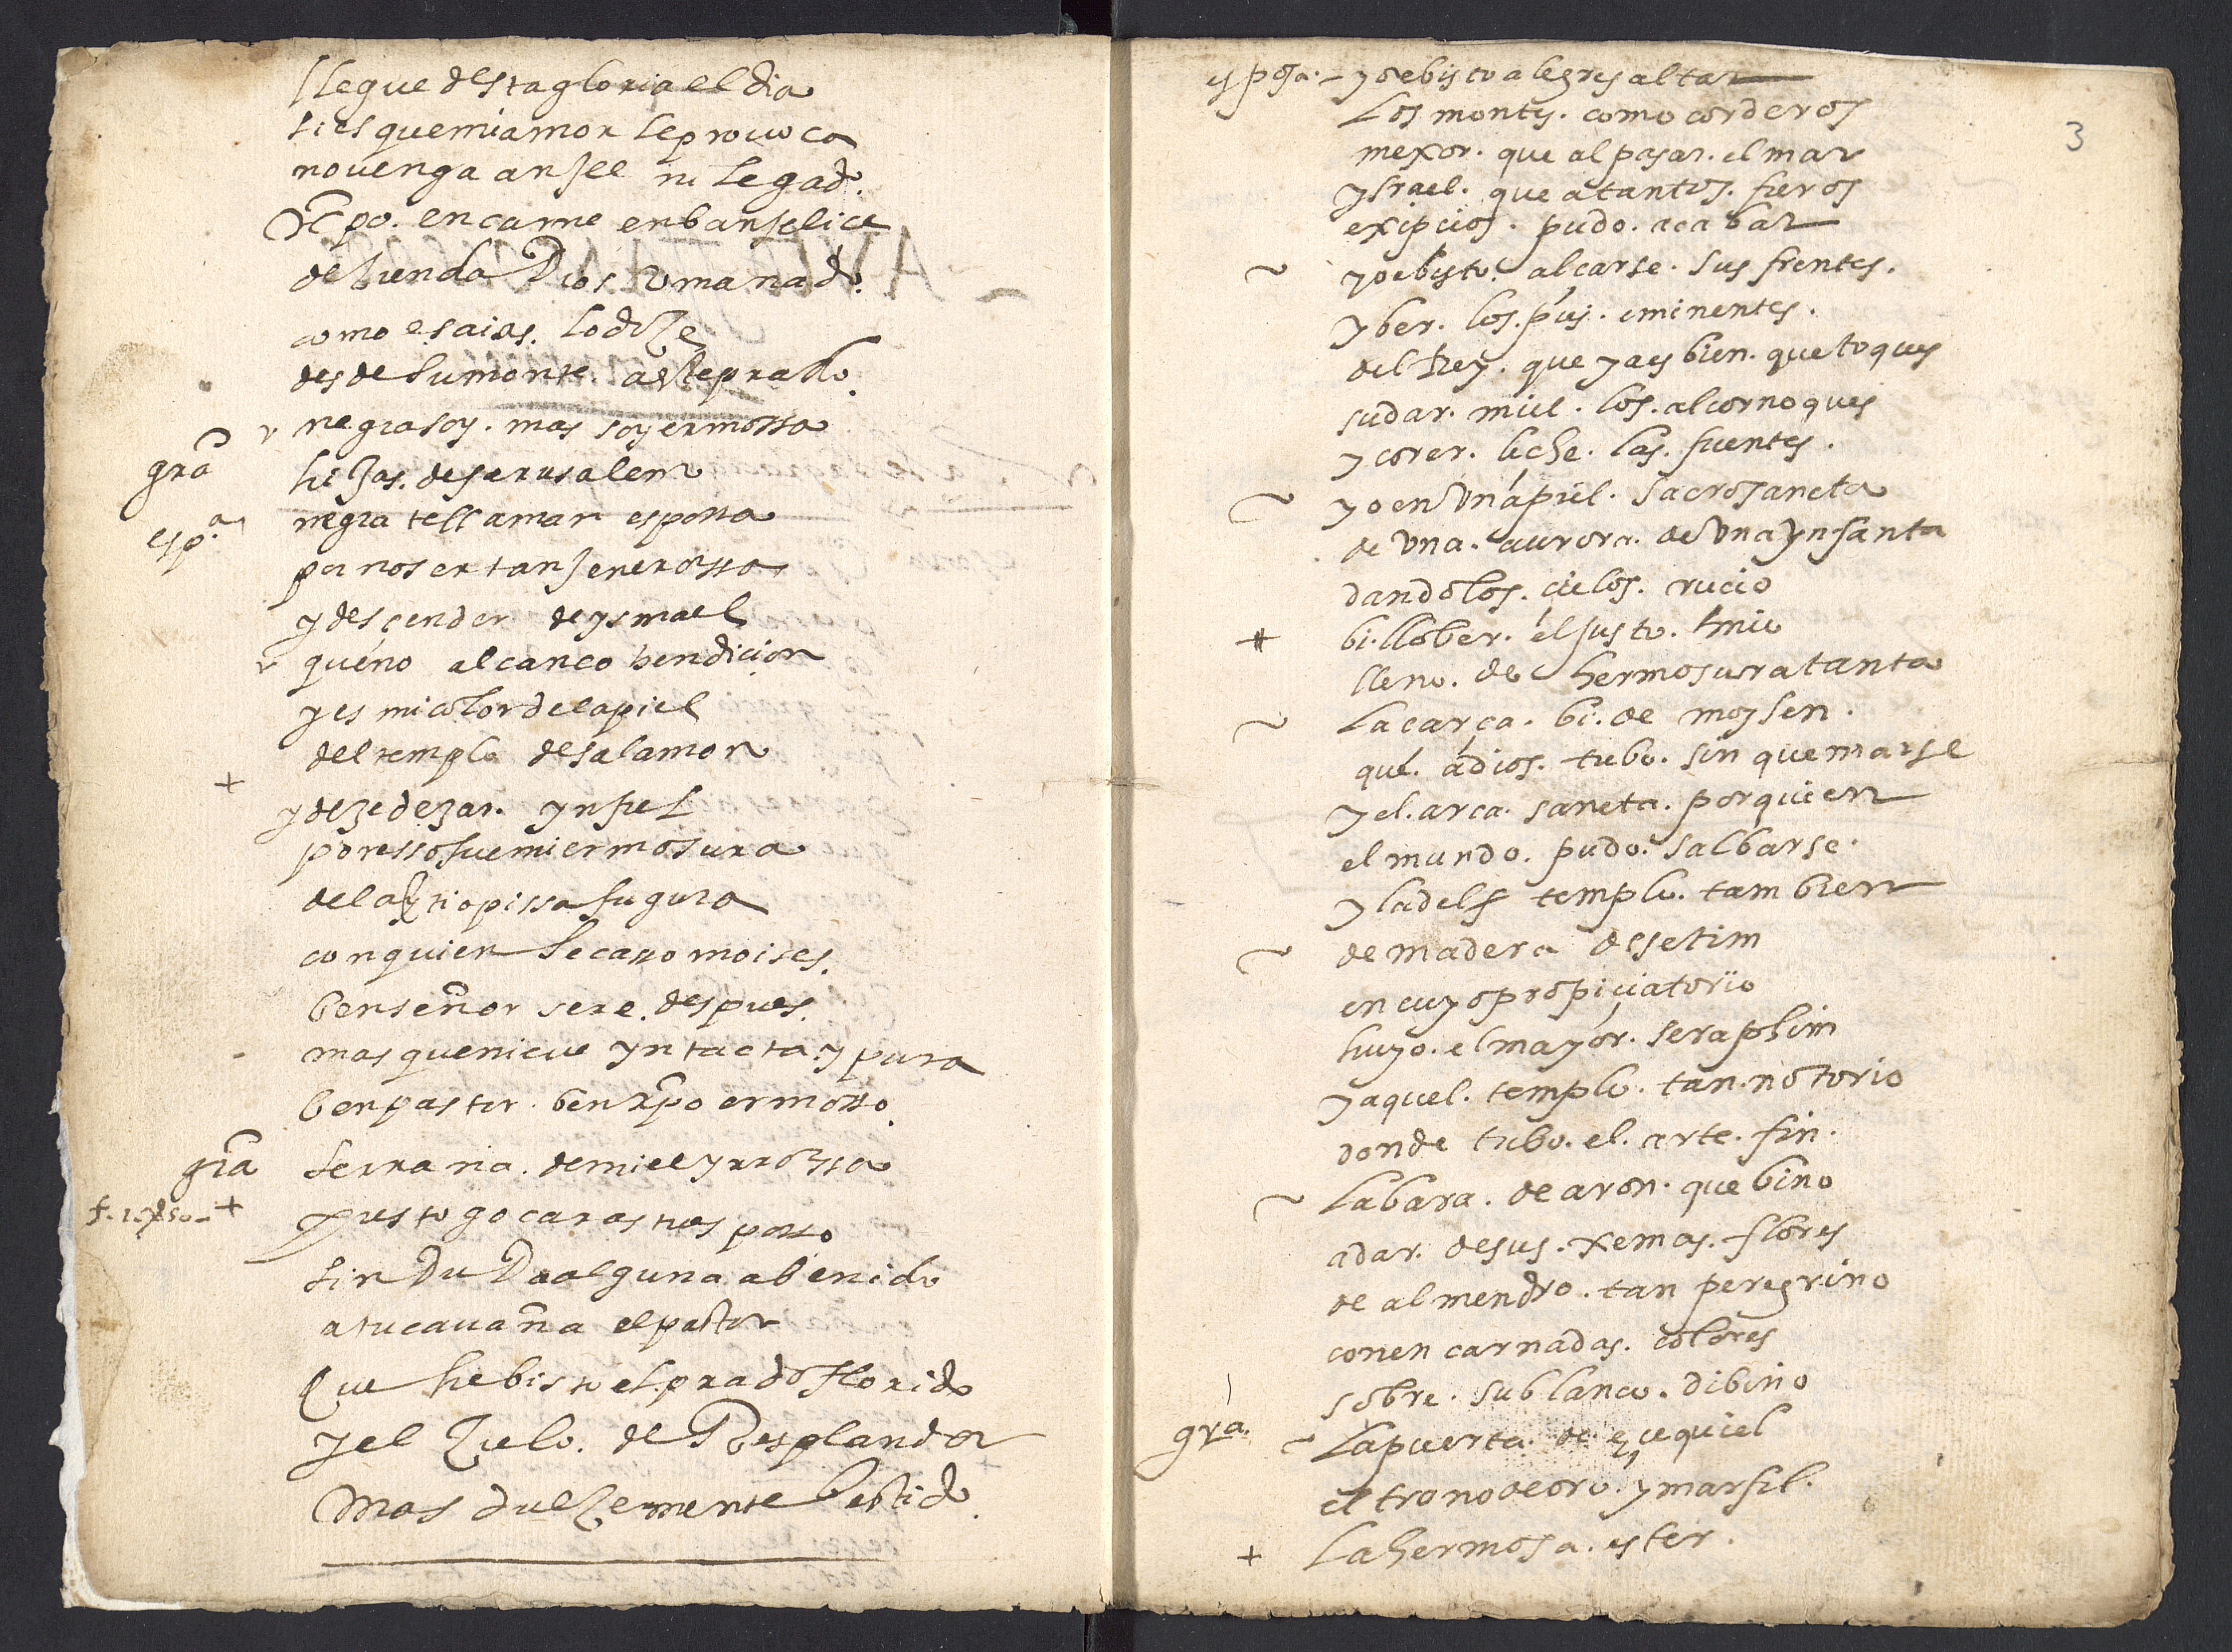 llegue desta gloria el dia
si es que mi amor le prouoca
no uenga anjel ni legado.
xpo. en carne en banselice
descienda Dios umanado.
como esaias. lo dize
desde su monte. a este prado.
negra soy. mas soy ermossa
gra hijas. de jerusalem
espa. negra te llaman espossa
por no ser tan jenerossa
y desçender de ysmael
que no alcanço bendiçion
y es mi color de la piel
del templo de salamon
+ y de zedezar. ynfiel
por esso fue mi ermosura
de la etiopissa figura
con quien se caso moises.
ben señor sere. despues.
mas que nieue yntacta. y pura
ben pastor. ben xpo ermosso.
gra serrana. de miel y rrossa
+ presto goçaras tu esposso
sin DuDa alguna a benido
a tu cauaña el pastor
Que he bisto el prado florido
y el Zielo. de Resplandor
mas dulzemente bestido.
3
esposa. – yo e bisto alegres altar
los montes. como corderos
mexor. que al pasar. el mar
ysrael. que a tantos. fieros
exipcios. pudo. acabar
~ yo e bisto. alçarse. sus frentes.
y ber. los. pies. eminentes.
del Rey. que ya es bien. que toques
sudar. miel. los. alcornoques
y corer. leche. las. fuentes.
~ yo en una piel. sacrosancta
de una. aurora. de una ynfanta
dando los. cielos. rucio
bi. llober. el justo. mio
lleno. de hermosura tanta
~ la çarça. bi. de moysen.
que. a dios. tubo. sin quemarse
y el. arca. sancta. por quien
el mundo. pudo. salbarse.
y la del templo. tambien
~ de madera de setim
en cuyo propiciatorio
huyo. el mayor. seraphim
y aquel. templo. tan. notorio
donde tubo. el. arte. fin.
~ la bara. de aron. que bino
a dar. de sus. xemas. flores
de almendro. tan peregrino
con encarnadas. colores
sobre. su blanco. dibino
gra. ~ la puerta. de eçequiel
el trono de oro. y marfil.
+ la hermosa. ester.